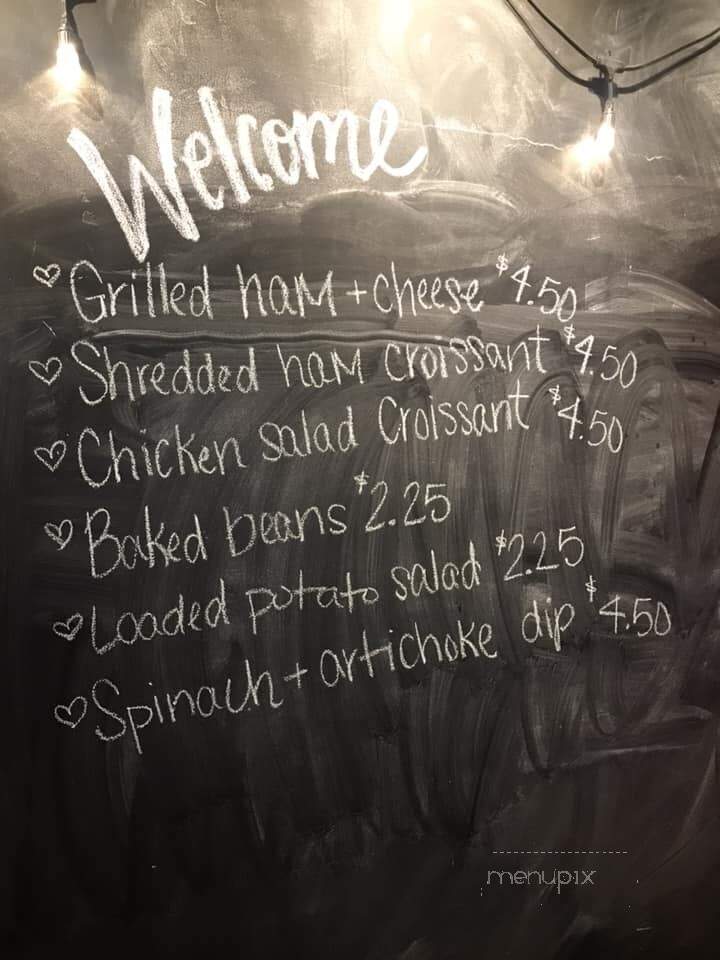 Welcome
♡ Grilled ham + cheese $4.50
♡ Shredded ham croissant $4.50
♡ Chicken salad Croissant $4.50
♡ Baked beans $2.25
♡ Loaded potato salad $2.25
♡ Spinach + artichoke dip $4.50
menupix